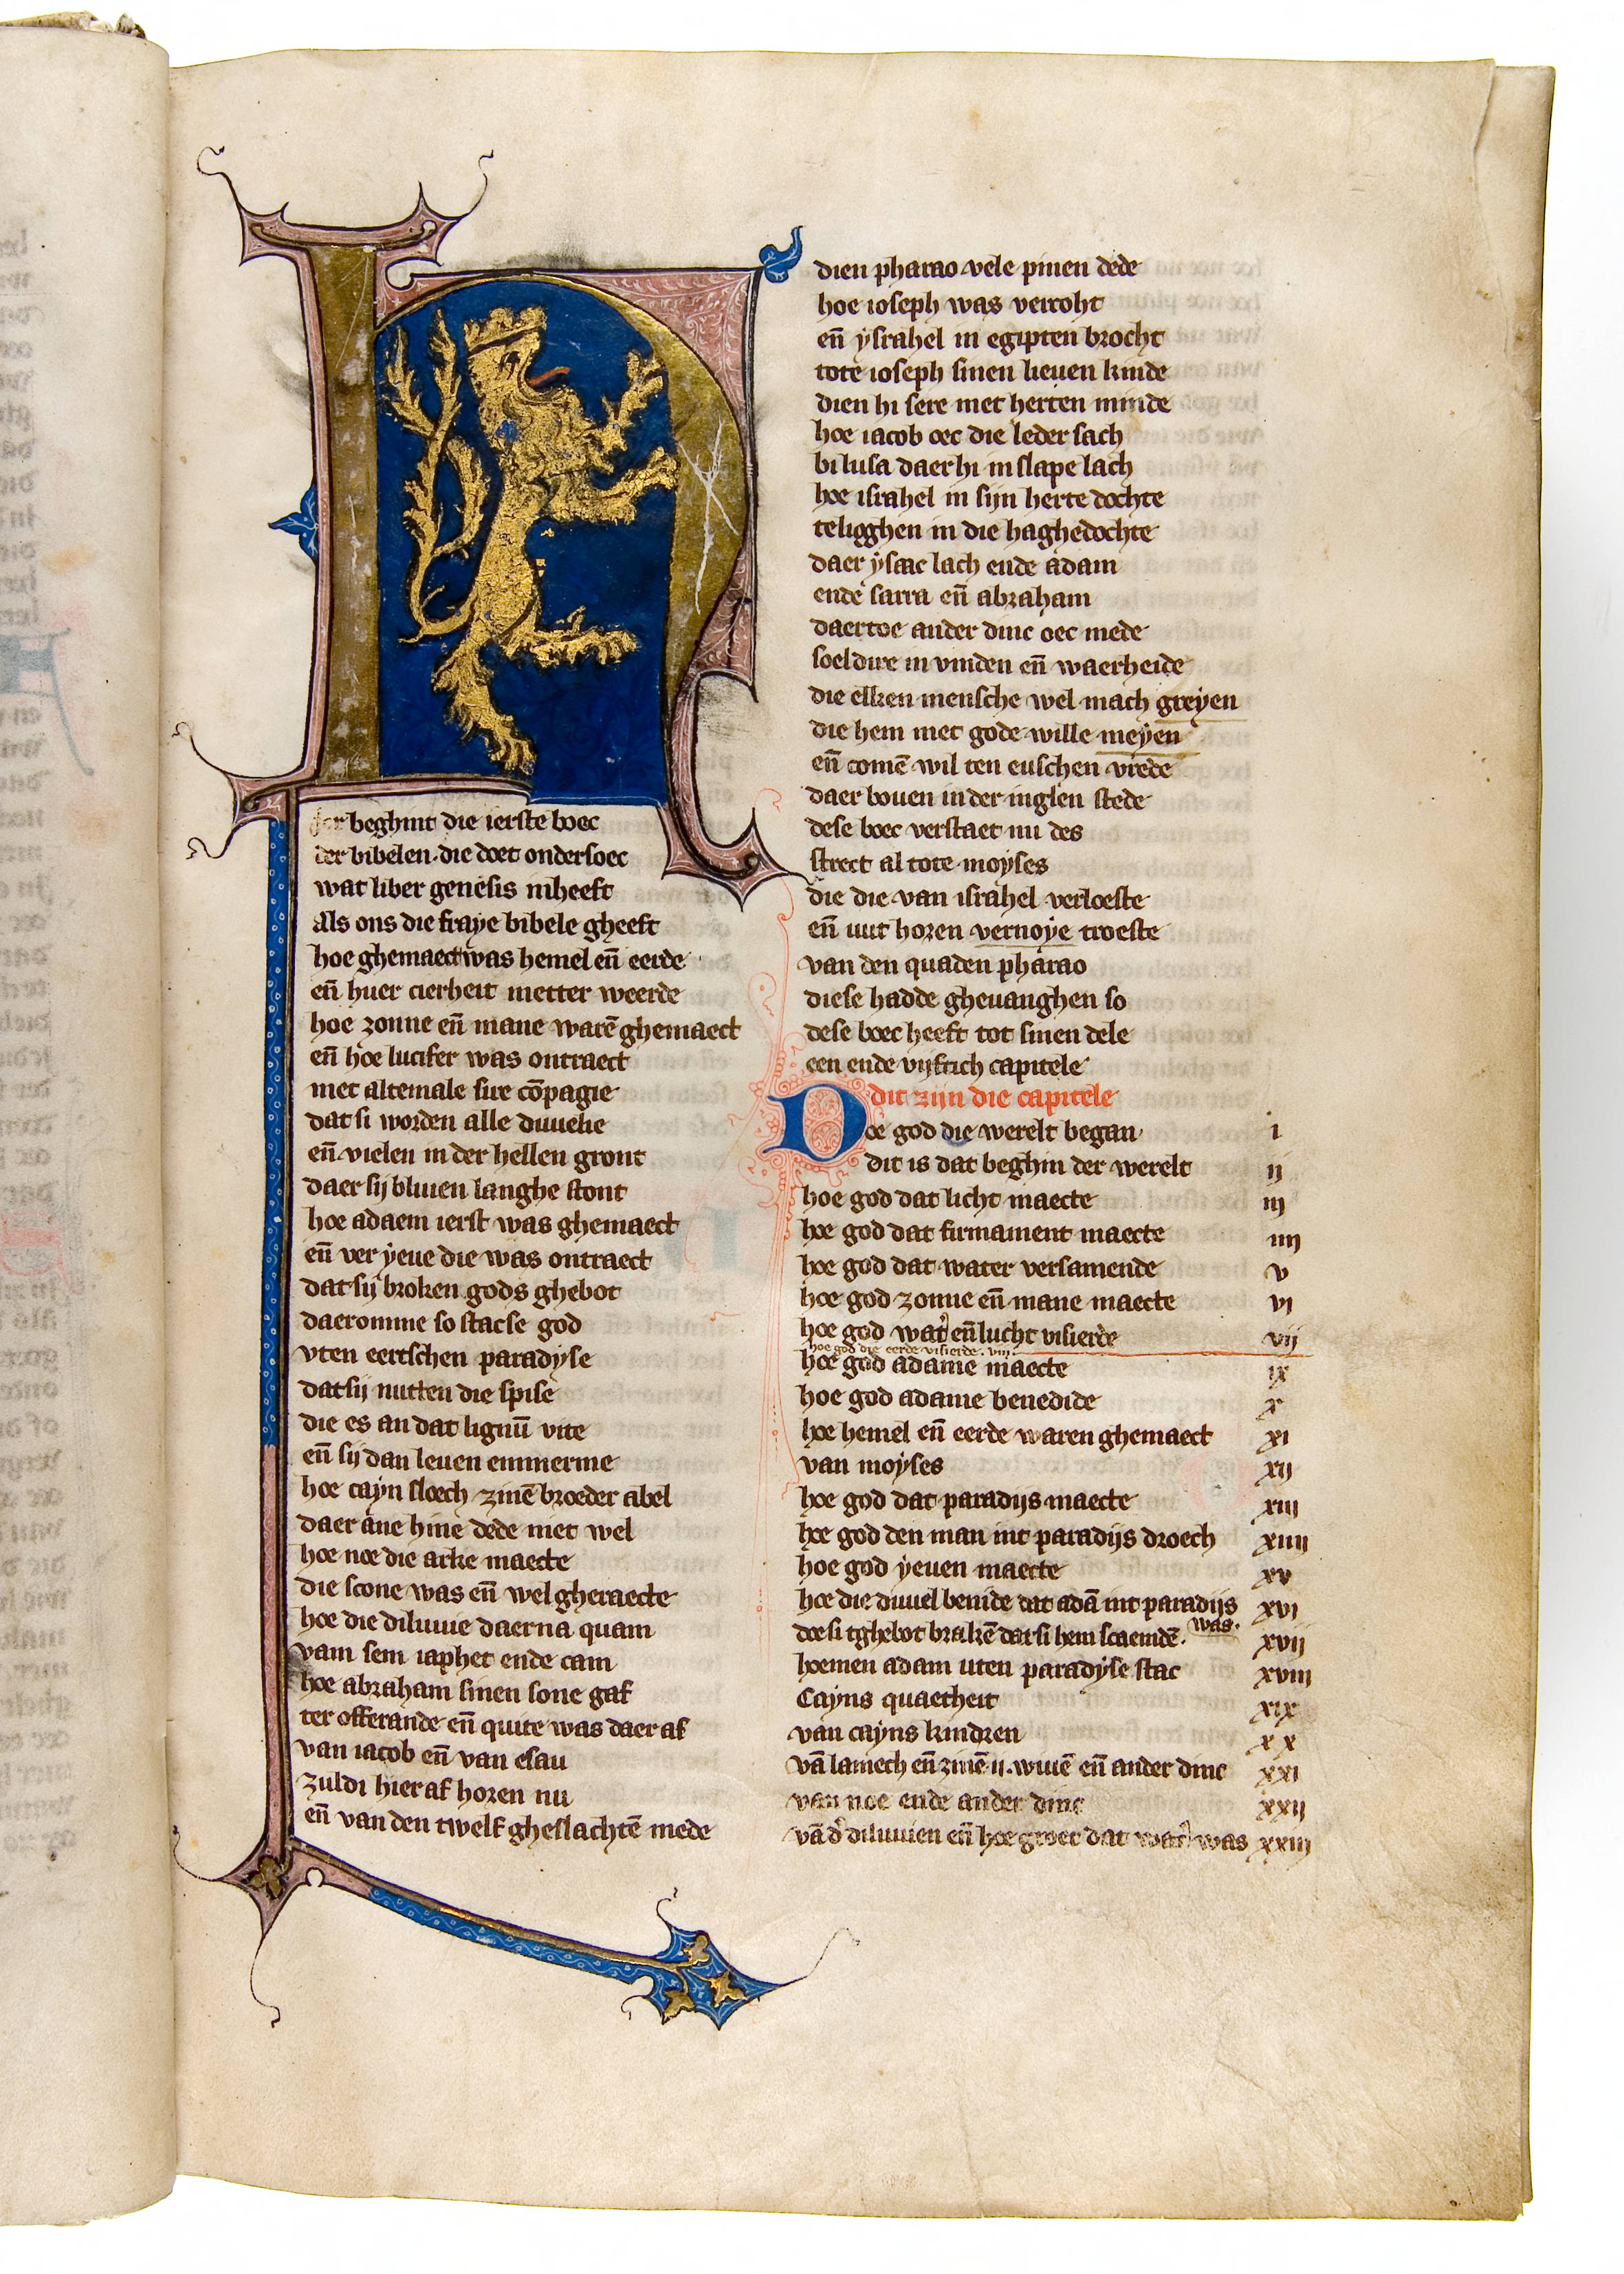 Hier beghint die ierste boec
der bibelen. die doet ondersoec
wat liber genesis inheeft
Als ons die fraye bibele gheeft
hoe ghemaect was hemel eñ eerde
eñ huer cierheit metter weerde
hoe zonne eñ mane warē ghemaect
eñ hoe lucifer was ontraect
met altemale sire cōpagie
dat si worden alle duuelie
eñ vielen in der hellen gront
daer sij bliuen langhe stont
hoe adaem ierst was ghemaect
eñ ver yeue die was ontraect
dat sij broken gods ghebot
daeromme so stacse god
vten eertschen paradyse
dat sij nutten die spise
die es an dat lignū vite
eñ sij dan leuen emmerme
hoe cayn sloech zinē broeder abel
daer ane hine dede niet wel
hoe noe die arke maecte
die scone was eñ wel gheraecte
hoe die diluuie daerna quam
vam sem iaphet ende cam
hoe abraham sinen sone gaf
ter offerande eñ quite was daer af
van iacob eñ van esau
zuldi hier af horen nu
eñ van den twelf gheslachtē mede
dien pharao vele pinen dede
hoe ioseph was vercoht
eñ ysrahel in egipten brocht
tote ioseph sinen lieuen kinde
dien hi sere met herten minde
hoe iacob oec die leder sach
bi lusa daer hi in slape lach
hoe israhel in sijn herte dochte
te ligghen in die haghedochte
daer ysaac lach ende adam
ende sarra eñ abraham
daertoe ander dinc oec mede
soeldire in vinden eñ waerheide
die elken mensche wel mach greyen
die hem met gode wille meyen
eñ comē wil ten euschen vrede
daer bouen in der inglen stede
dese boec verstaet nu des
strect al tote moyses
die die van israhel verloeste
eñ uut horen vernoye troeste
van den quaden pharao
diese hadde gheuanghen so
dese boec heeft tot sinen dele
een ende vijftich capitele
dit zijn die capitele
Doe god die werelt began i
dit is dat beghin der werelt ij
hoe god dat licht maecte iij
hoe god dat firmament maecte iiij
hoe god dat water versamende v
hoe god zonne eñ mane maecte vi
hoe god wat͛ eñ lucht visierde vij
hoe god die eerde visierde. viii.
hoe god adame maecte ix
hoe god adame benedide x
hoe hemel eñ eerde waren ghemaect xi
van moyses xij
hoe god dat paradijs maecte xiii
hoe god den man int paradijs droech xiiij
hoe god yeuen maecte xv
hoe die duuel benide dat adā int paradijs was. xvi
doe si tghebot brakē dat si hem scaemdē. xvij
hoemen adam uten paradyse stac xviii
Cayns quaetheit xix
van cayns kindren xx
vā lamech eñ zinē .ij. wiuē eñ ander dinc xxi
van noe ende ander dinc xxij
vā d͛ diluuien eñ hoe groet dat wat͛ was xxiij